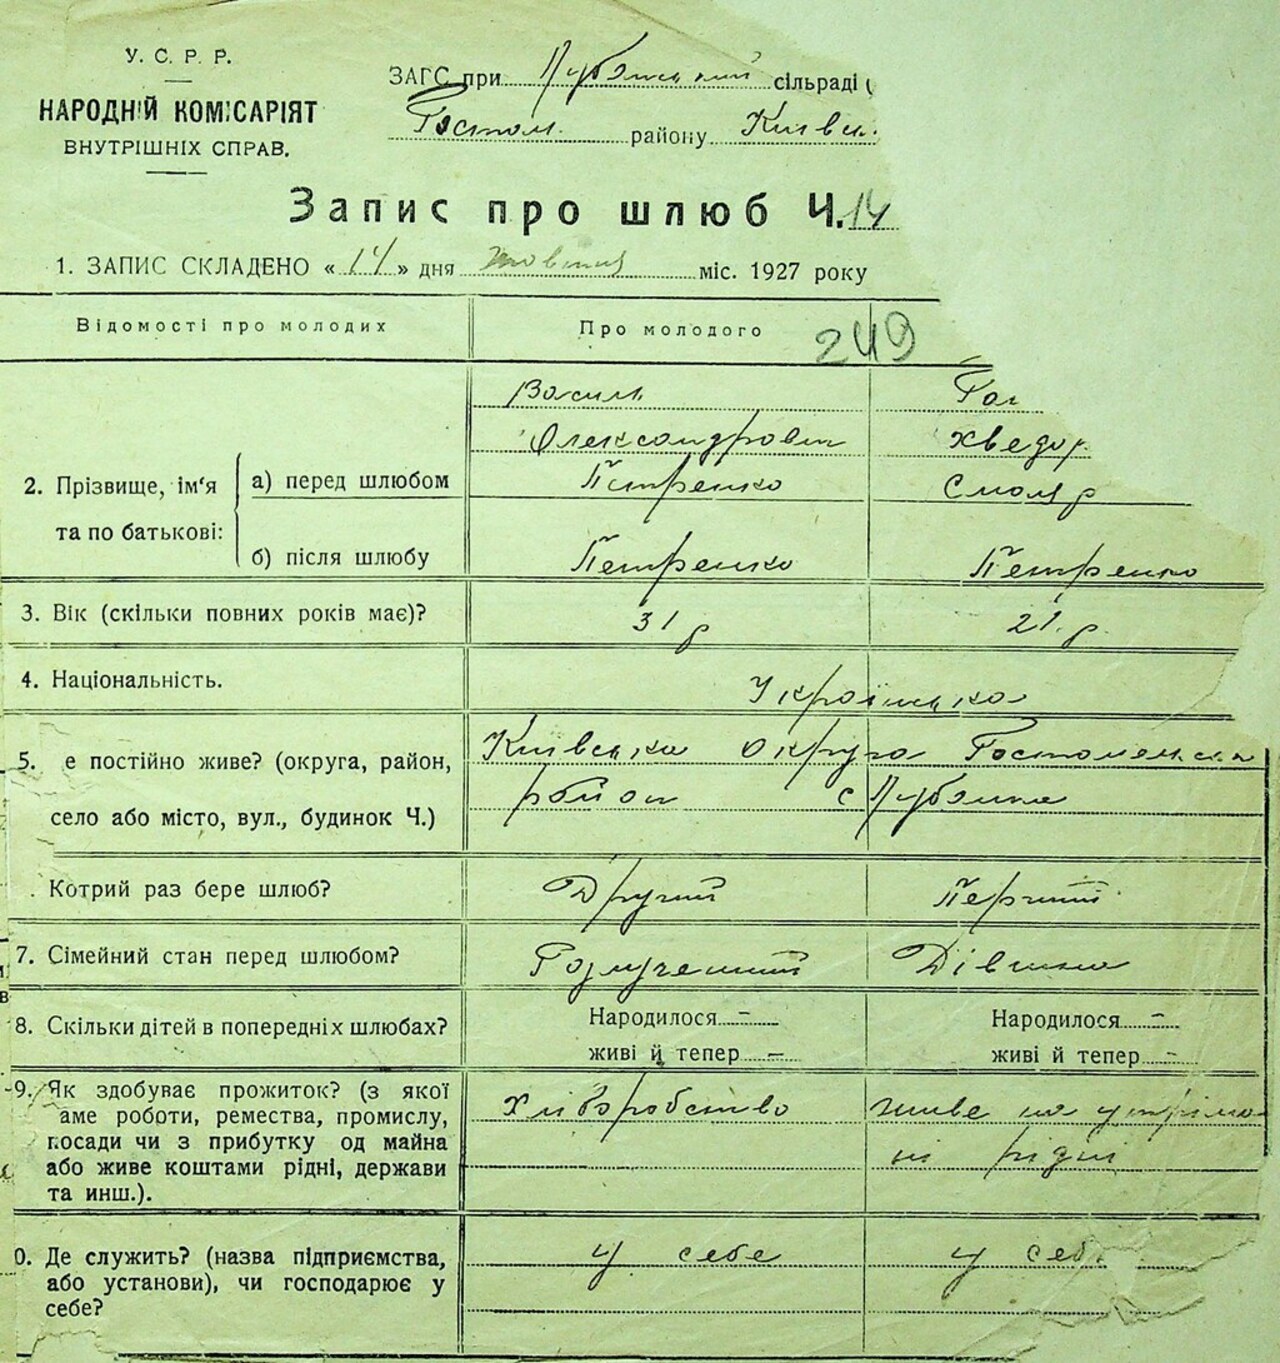 У. С. Р. Р.
НАРОДНІЙ КОМІСАРІЯТ
ВНУТРІШНІХ СПРАВ.
ЗАГС при Лубянський сільраді
Гостом. району Київ
Запис про шлюб Ч. 14
1. ЗАПИС СКЛАДЕНО « 14 » дня жовтня міс. 1927 року
Відомості про молодих Про молодого 249
Василь
Олександрович Хведор.
2. Прізвище, ім'я та по батькові: а) перед шлюбом Петренко Смоляр
б) після шлюбу Петренко Петренко
3. Вік (скільки повних років має)? 31 р 21. р.
4. Національність. Українська
5. е постійно живе? (округа, район, Київська округа Гостомельськ
село або місто, вул., будинок Ч.) район с Лубянка
Котрий раз бере шлюб? Другий Перший
7. Сімейний стан перед шлюбом? Розлучений Дівчина
8. Скільки дітей в попередніх шлюбах? Народилося – Народилося –
живі й тепер – живі й тепер –
9. Як здобуває прожиток? (з якої Хліборобство живе на утріма
аме роботи, ремества, промислу, ні рідні
посади чи з прибутку од майна
або живе коштами рідні, держави
та инш.).
0. Де служить? (назва підприємства, у себе у себ
або установи), чи господарює у
себе?